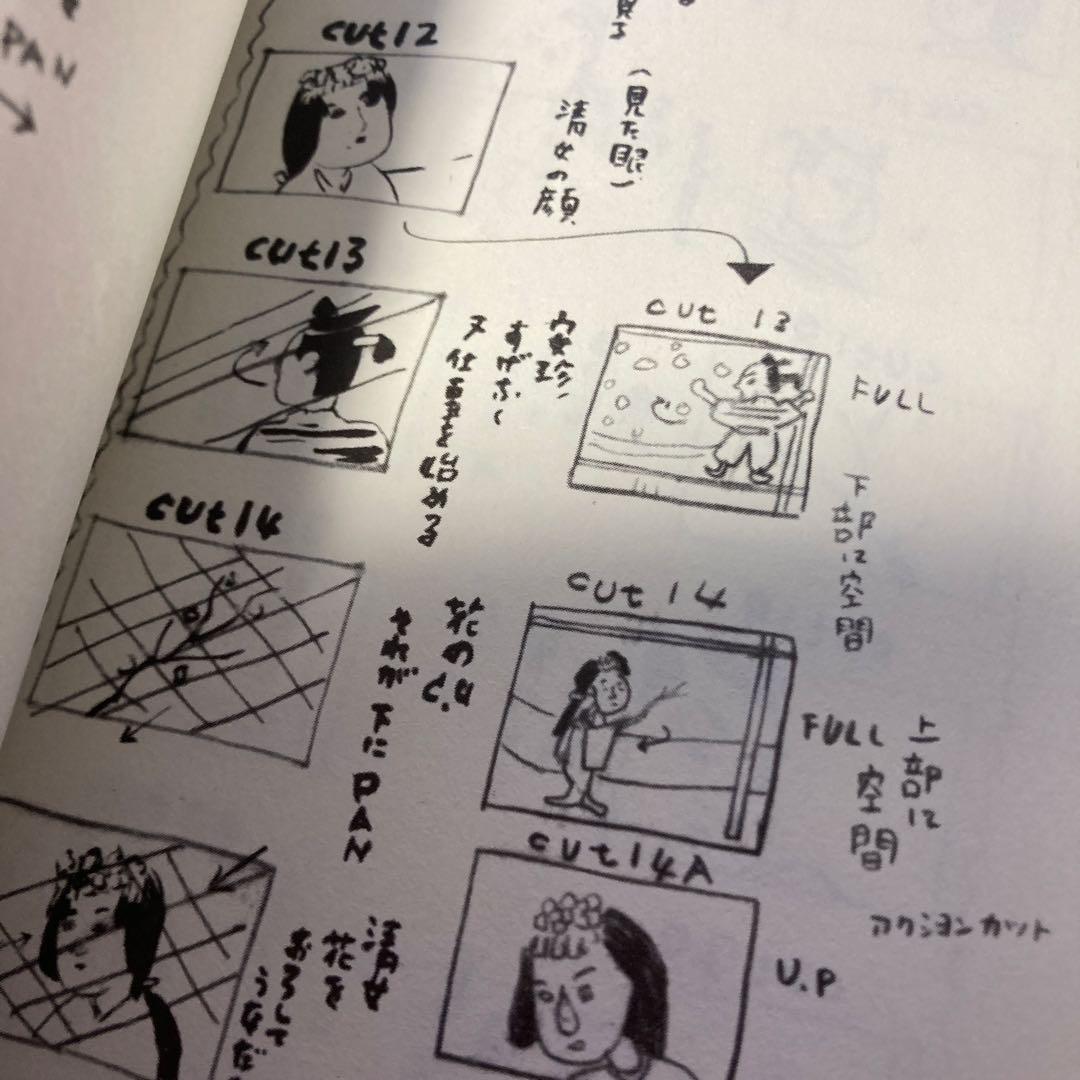 PAN
cut12
(見た眼)
清女の顔
cut13
安珍
すげなく
又仕事を始める
cut 13
FULL
下部に空間
cut14
花のくい
それが下にPAN
cut 14
FULL
上部に
空間
cut14A
アクションカット
U.P
清女
花を
おろして
うなだ